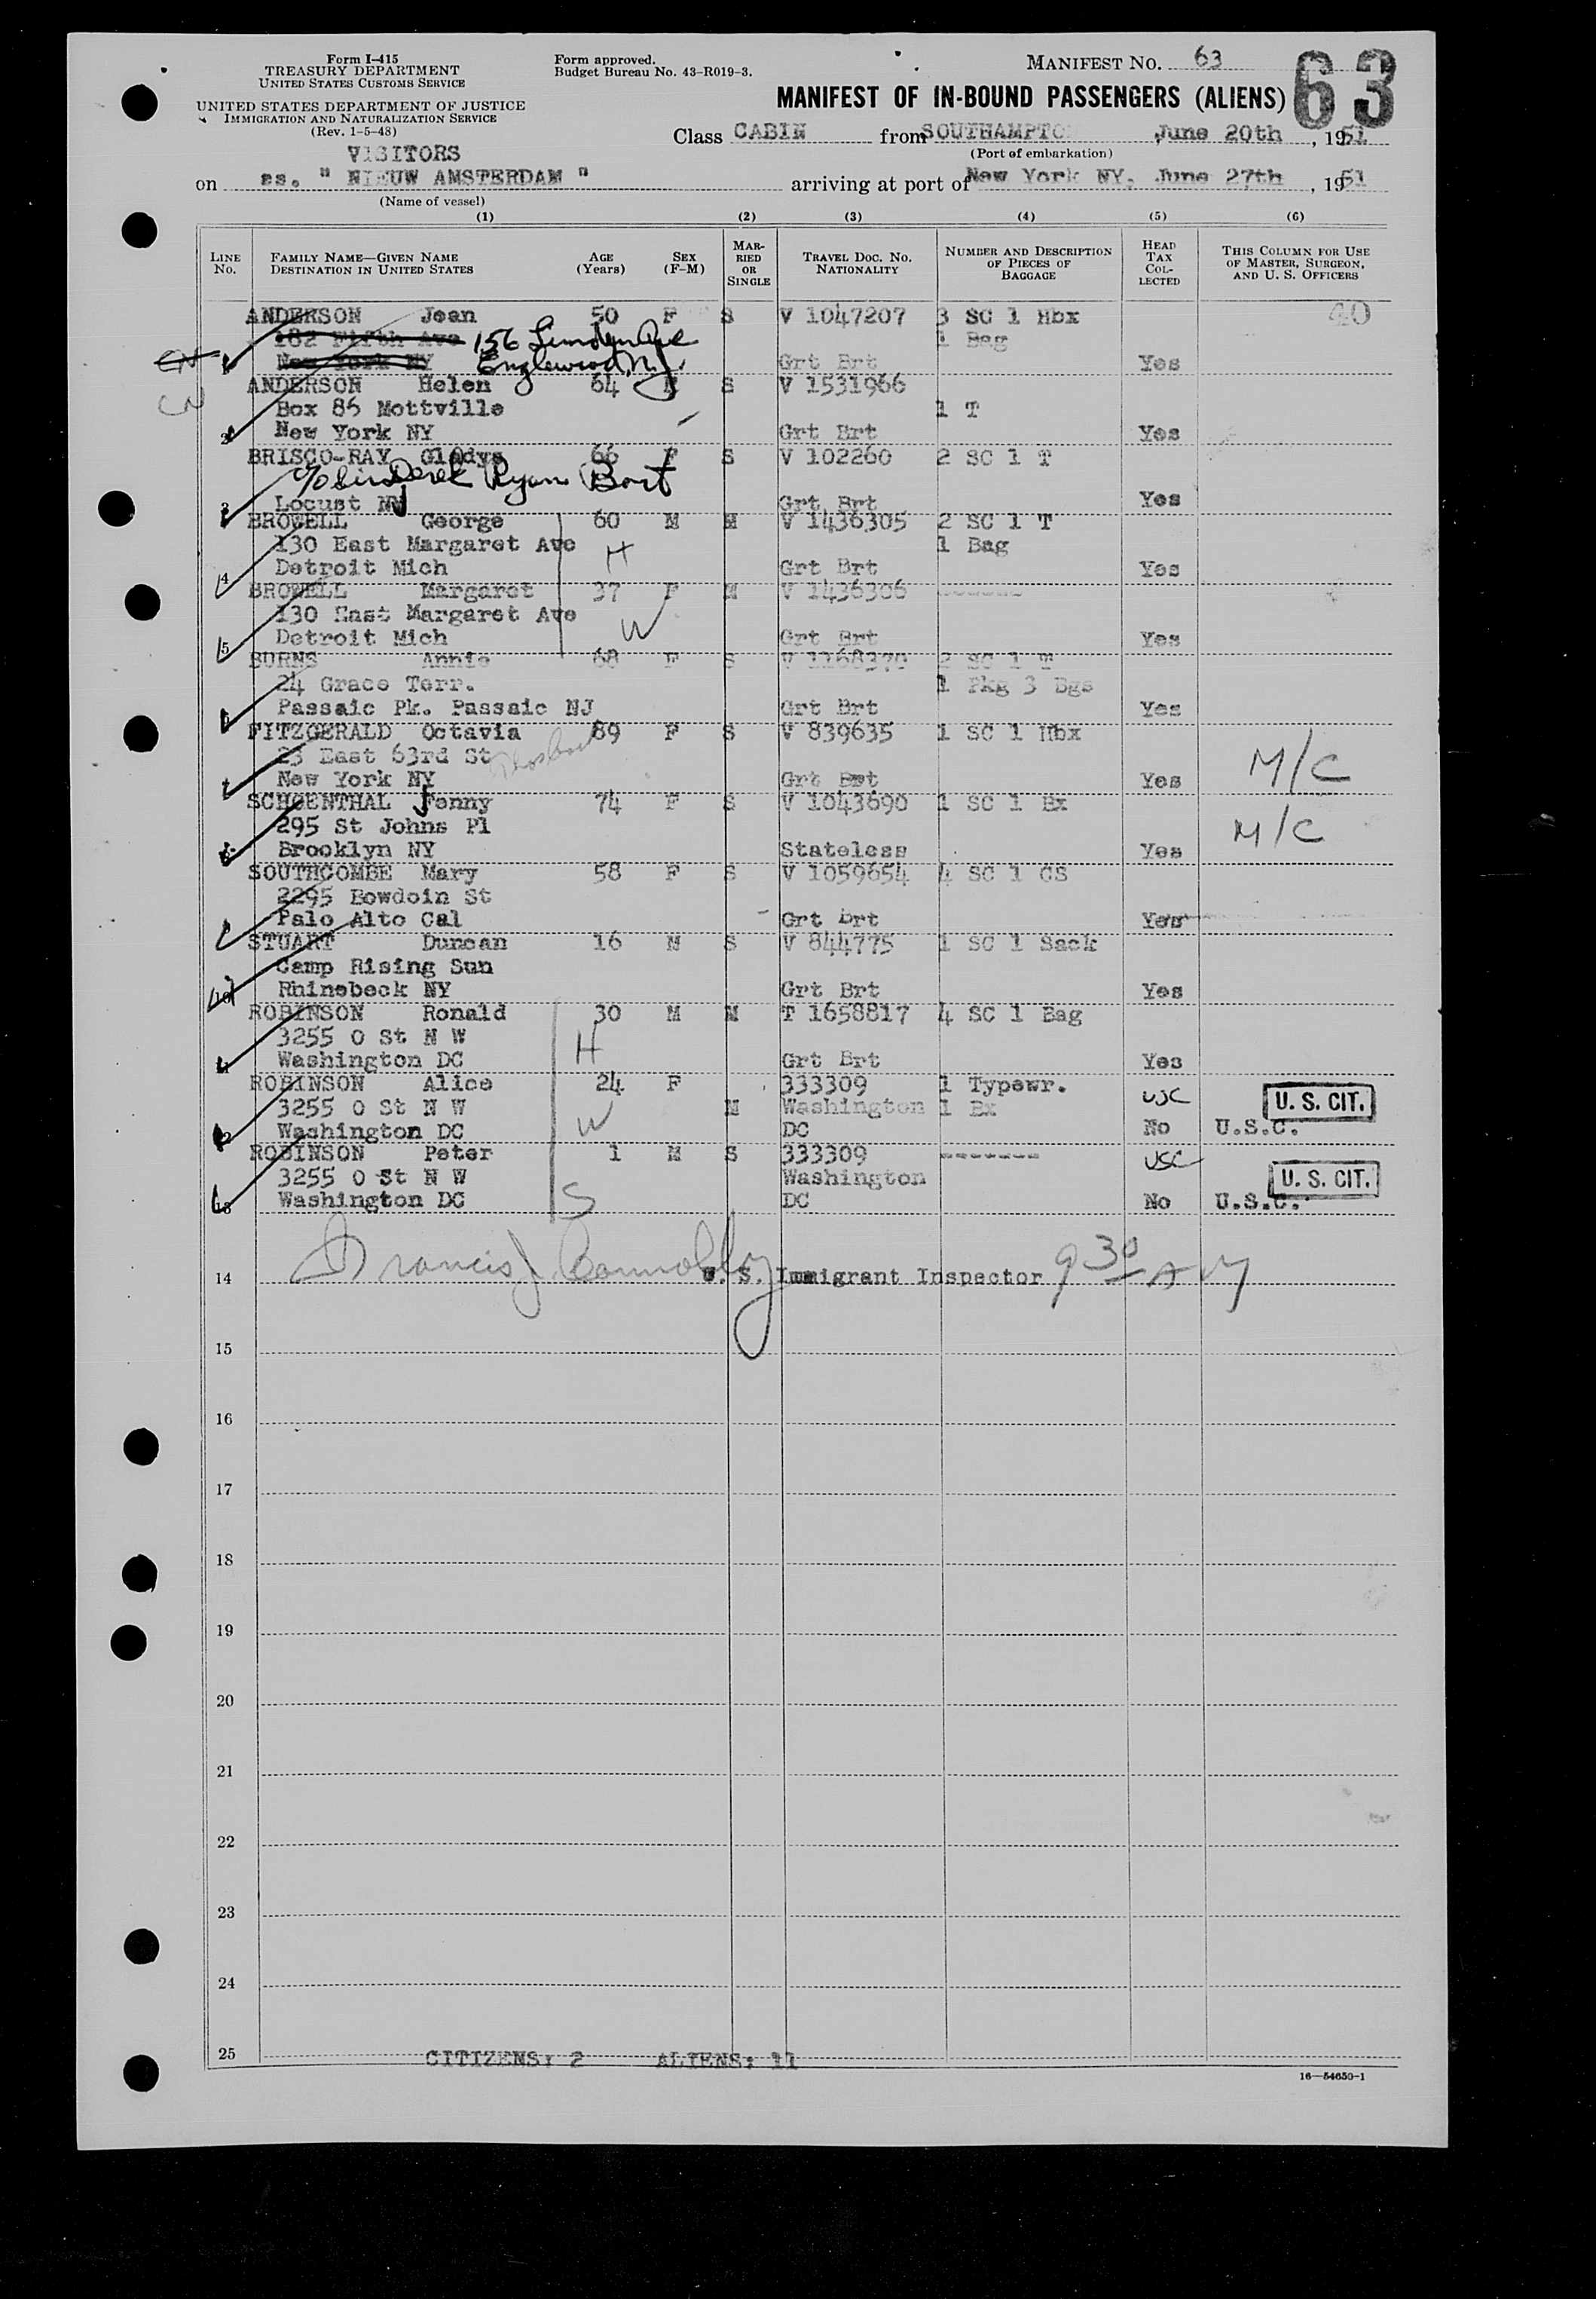 Form I-415
TREASURY DEPARTMENT
UNITED STATES CUSTOMS SERVICE
UNITED STATES DEPARTMENT OF JUSTICE
IMMIGRATION AND NATURALIZATION SERVICE
(Rev. 1-5-48)
Form approved.
Budget Bureau No. 43-R019-3.
MANIFEST NO. 63
63
MANIFEST OF IN-BOUND PASSENGERS (ALIENS)
Class CABIN from SOUTHAMPTO June 20th, 1951
(Port of embarkation)
VISITORS
on ss. " NIEUW AMSTERDAM " arriving at port of New York NY, June 27th, 1951
(Name of vessel)
(1) (2) (3) (4) (5) (6)
LINE NO. FAMILY NAME—GIVEN NAME DESTINATION IN UNITED STATES AGE (Years) SEX (F-M) MARRIED OR SINGLE TRAVEL DOC. NO. NATIONALITY NUMBER AND DESCRIPTION OF PIECES OF BAGGAGE HEAD TAX COLLECTED THIS COLUMN FOR USE OF MASTER, SURGEON, AND U. S. OFFICERS
ANDERSON Jean 50 F S V 1047207 3 SC 1 Hbx 40
182 Fifth Ave 156 Ave 1 Bag
1 New York NY Englewood, N.J. Grt Brt Yes
ANDERSON Helen 64 S V 1531966
Box 86 Mottville 1 T
2 New York NY Grt Brt Yes
BRISCO-RAY Gladys 66 F S V 102260 2 SC 1 T
c/o Derek Ryan
3 Locust NY Grt Brt Yes
BROWELL George 60 M M V 1436305 2 SC 1 T
130 East Margaret Ave H 1 Bag
4 Detroit Mich Grt Brt Yes
BROWELL Margaret 37 F M V 1436306 -------
130 East Margaret Ave W
5 Detroit Mich Grt Brt Yes
BURNS Annie 68 F S V 1168370 2 SC 1 T
24 Grace Terr. 1 Pkg 3 Bgs
Passaic Pk. Passaic NJ Grt Brt Yes
FITZGERALD Octavia 89 F S V 839635 1 SC 1 Hbx
23 East 63rd St M/C
New York NY Grt Brt Yes
SCHOENTHAL Jenny 74 F S V 1043690 1 SC 1 Bx
295 St Johns Pl M/C
Brooklyn NY Stateless Yes
SOUTHCOMBE Mary 58 F S V 1059654 4 SC 1 CS
2295 Bowdoin St
Palo Alto Cal Grt Brt Yes
STUART Duncan 16 M S V 844775 1 SC 1 Sack
Camp Rising Sun
10 Rhinebeck NY Grt Brt Yes
ROBINSON Ronald 30 M M T 1658817 4 SC 1 Bag
3255 O St N W H
Washington DC Grt Brt Yes
ROBINSON Alice 24 F 333309 1 Typewr. USC
3255 O St N W W M Washington 1 Bx U. S. CIT.
12 Washington DC DC No U.S.C.
ROBINSON Peter 1 M S 333309 ------- USC
3255 O St N W Washington U. S. CIT.
13 Washington DC S DC No U.S.C.
14 Francis J Connolly U. S. Immigrant Inspector 9 30 AM
15
16
17
18
19
20
21
22
23
24
25 CITIZENS: 2 ALIENS: 11
16—54650-1